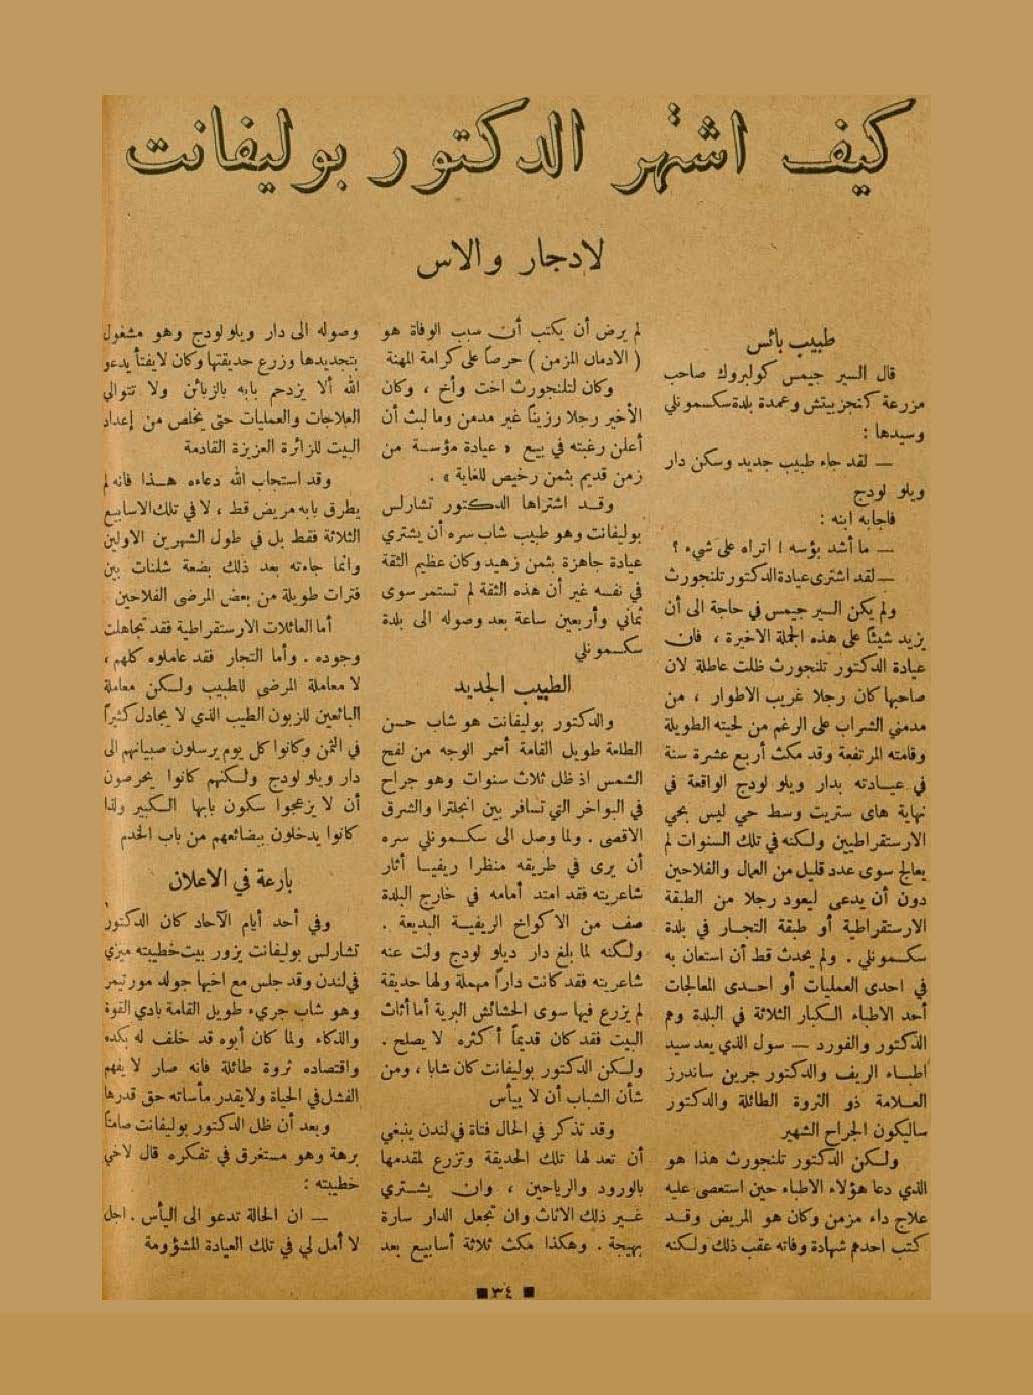 كيف اشتهر الدكتور بوليفانت
لادجار والاس
طبيب بائس
قال السير جيمس كولبروك صاحب
مزرعة كنجزبيتش وعمدة بلدة سكسمونلي
وسيدها :
— لقد جاء طبيب جديد وسكن دار
ويلو لودج
فاجابه ابنه :
— ما أشد بؤسه ! اتراه على شيء ؟
— لقد اشترى عيادة الدكتور تلنجورث
ولم يكن السير جيمس في حاجة الى أن
يزيد شيئاً على هذه الجملة الاخيرة ، فان
عيادة الدكتور تلنجورث ظلت عاطلة لان
صاحبها كان رجلا غريب الاطوار ، من
مدمني الشراب على الرغم من لحيته الطويلة
وقامته المرتفعة وقد مكث أربع عشرة سنة
في عيادته بدار ويلو لودج الواقعة في
نهاية هاى ستريت وسط حي ليس بحي
الارستقراطيين ولكنه في تلك السنوات لم
يعالج سوى عدد قليل من العمال والفلاحين
دون أن يدعى ليعود رجلا من الطبقة
الارستقراطية أو طبقة التجار في بلدة
سكسمونلي . ولم يحدث قط أن استعان به
في احدى العمليات أو احدى المعالجات
أحد الاطباء الكبار الثلاثة في البلدة وهم
الدكتور والفورد — سول الذي يعد سيد
اطباء الريف والدكتور جرين ساندرز
العلامة ذو الثروة الطائلة والدكتور
ساليكون الجراح الشهير
ولكن الدكتور تلنجورث هذا هو
الذي دعا هؤلاء الاطباء حين استعصى عليه
علاج داء مزمن وكان هو المريض وقد
كتب احدهم شهادة وفاته عقب ذلك ولكنه
لم يرض أن يكتب أن سبب الوفاة هو
( الادمان المزمن ) حرصاً على كرامة المهنة
وكان لتلنجورث اخت وأخ ، وكان
الأخير رجلا رزيناً غير مدمن وما لبث أن
أعلن رغبته في بيع « عيادة مؤسسة من
زمن قديم بثمن رخيص للغاية » .
وقد اشتراها الدكتور تشارلس
بوليفانت وهو طبيب شاب سره أن يشتري
عيادة جاهزة بثمن زهيد وكان عظيم الثقة
في نفسه غير أن هذه الثقة لم تستمر سوى
ثماني وأربعين ساعة بعد وصوله الى بلدة
سكسمونلي
الطبيب الجديد
والدكتور بوليفانت هو شاب حسن
الطلعة طويل القامة أسمر الوجه من لفح
الشمس اذ ظل ثلاث سنوات وهو جراح
في البواخر التي تسافر بين انجلترا والشرق
الاقصى . ولما وصل الى سكسمونلي سره
أن يرى في طريقه منظرا ريفيا أثار
شاعريته فقد امتد أمامه في خارج البلدة
صف من الاكواخ الريفية البديعة .
ولكنه لما بلغ دار ديلو لودج ولت عنه
شاعريته فقد كانت داراً مهملة ولها حديقة
لم يزرع فيها سوى الحشائش البرية أما أثاث
البيت فقد كان قديماً أكثره لا يصلح .
ولكن الدكتور بوليفانت كان شابا ، ومن
شأن الشباب أن لا ييأس
وقد تذكر في الحال فتاة في لندن ينبغي
أن تعد لها تلك الحديقة وتزرع لمقدمها
بالورود والرياحين ، وان يشتري
غير ذلك الاثاث وان تجعل الدار سارة
بهيجة . وهكذا مكث ثلاثة أسابيع بعد
وصوله الى دار ويلو لودج وهو مشغول
بتجديدها وزرع حديقتها وكان لا يفتأ يدعو
الله ألا يزدحم بابه بالزبائن ولا تتوالى
العلاجات والعمليات حتى يخلص من إعداد
البيت للزائرة العزيزة القادمة
وقد استجاب الله دعاءه هذا فانه لم
يطرق بابه مريض قط ، لا في تلك الاسابيع
الثلاثة فقط بل في طول الشهرين الاولين
وانما جاءته بعد ذلك بضعة شلنات بين
فترات طويلة من بعض المرضى الفلاحين
أما العائلات الارستقراطية فقد تجاهلت
وجوده . وأما التجار فقد عاملوه كلهم ،
لا معاملة المرضى للطبيب ولكن معاملة
البائعين للزبون الطيب الذي لا يجادل كثيراً
في الثمن وكانوا كل يوم يرسلون صبيانهم الى
دار ويلو لودج ولكنهم كانوا يحرصون
أن لا يزعجوا سكون بابها الكبير ولذا
كانوا يدخلون ببضائعهم من باب الخدم
بارعة في الاعلان
وفي أحد أيام الآحاد كان الدكتور
تشارلس بوليفانت يزور بيت خطيبته ميزي
في لندن وقد جلس مع اخيها جولد مورتيمر
وهو شاب جريء طويل القامة بادي القوة
والذكاء ولما كان أبوه قد خلف له بكده
واقتصاده ثروة طائلة فانه صار لا يفهم
الفشل في الحياة ولا يقدر مأساته حق قدرها
وبعد أن ظل الدكتور بوليفانت صامتاً
برهة وهو مستغرق في تفكره قال لاخي
خطيبته :
— ان الحالة تدعو الى اليأس . اجل
لا أمل لي في تلك العيادة المشؤومة
٣٤